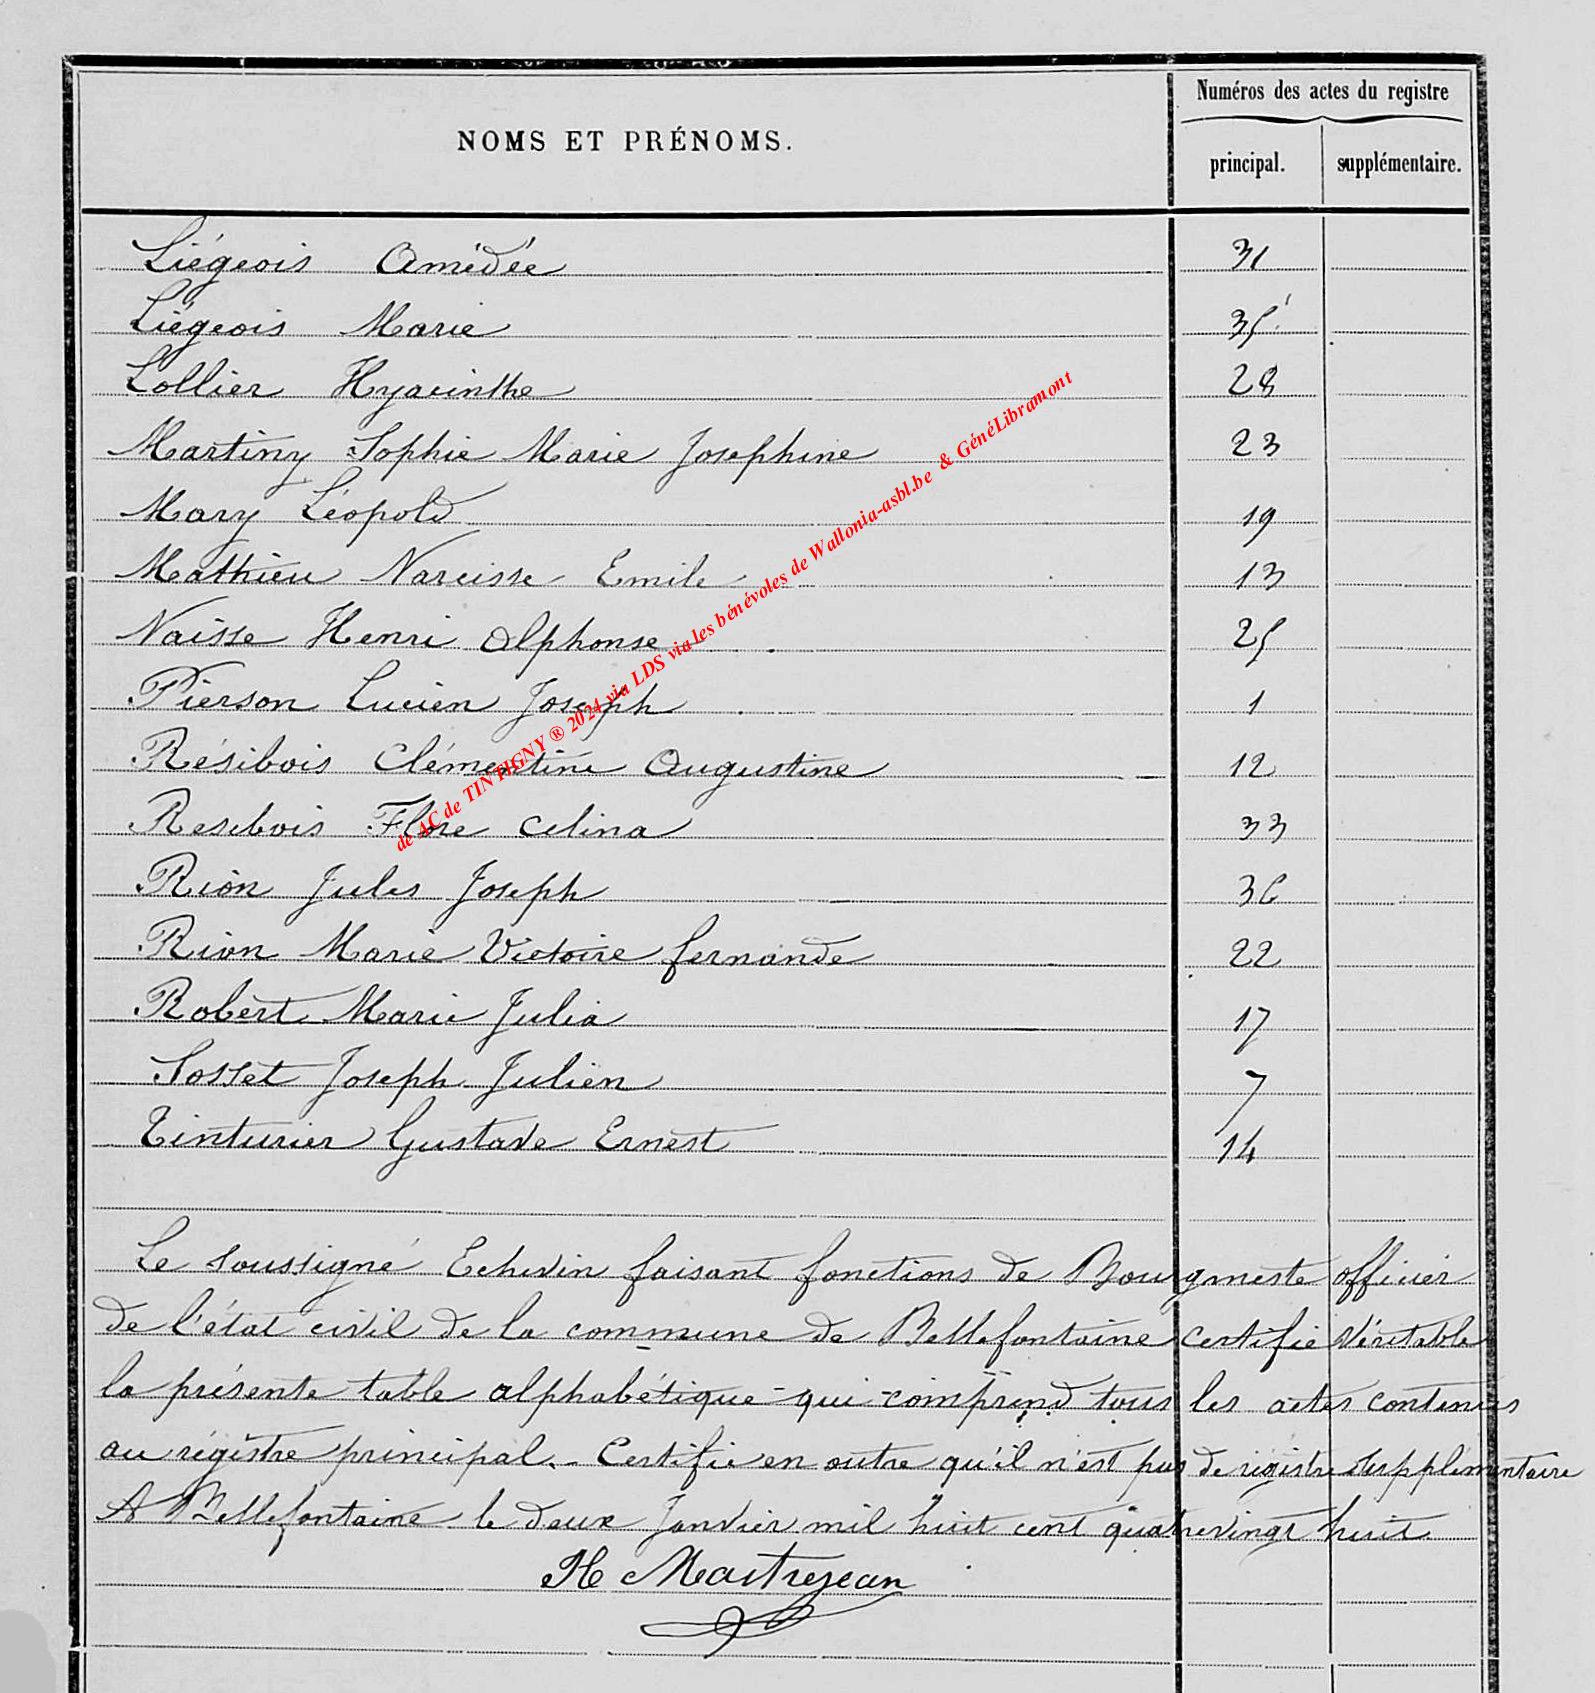 Numéros des actes du registre
NOMS ET PRÉNOMS.
principal. supplémentaire.
Liégeois Amédée 31
Liégeois Marie 35
Lollier Hyacinthe 28
Martiny Sophie Marie Josephine 23
Mary Léopold 19
Mathieu Narcisse Emile 13
Naisse Henri Alphonse 25
Pierson Lucien Joseph 1
Résibois Clémentine Augustine 12
Resibois Flore Celina 33
Rion Jules Joseph 36
Rion Marie Victoire fernande 22
Robert Marie Julia 17
Sosset Joseph Julien 7
Tinturier Gustave Ernest 14
Le soussigné Echevin faisant fonctions de Bourgmeste officier
de l'état civil de la commune de Bellefontaine certifie véritable
la présente table alphabétique qui comprend tous les actes contenus
au régistre principal. - Certifie en outre qu'il n'est pas de régistre supplémentaire
A Bellefontaine le deux Janvier mil huit cent quatrevingt huit.
H Maitrejean
de AC de TINTIGNY ® 2024 via LDS via les bénévoles de Wallonia-asbl.be & GénéLibramont